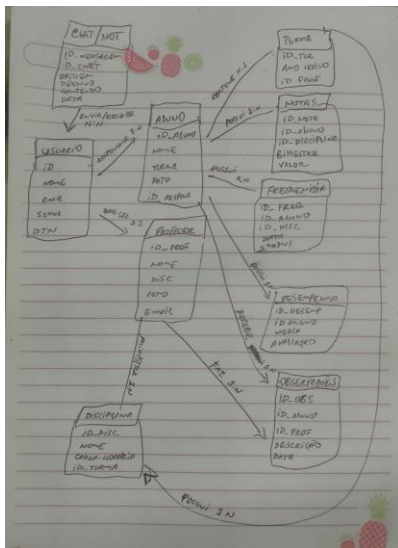 CHAT NOT
ID_MENSAGEM
ID_CHAT
ORIGEM
DESTINO
CONTEUDO
DATA
ENVIA/RECEBE
N:N
USUARIO
ID
NOME
EMAIL
SENHA
DTN
1:N
ALUNO
ID_ALUNO
NOME
TURMA
FOTO
ID_RESPONS
TURMA
ID_TUR
ANO LETIVO
ID PROF
POSSUI 1:N
NOTAS
ID_NOTA
ID_ALUNO
ID_DISCIPLINA
BIMESTRE
VALOR
POSSUI
FREQUENCIA
ID_FREQ
ID_ALUNO
ID_DISC
DATA
STATUS
PROFESSOR
ID_PROF
NOME
DISC
FOTO
EMAIL
POSSUI 1:N
DESEMPENHO
ID_DESEMP
ID ALUNO
MEDIA
AVALIAÇÃO
RECEBE
1:N
FAZ 1:N
OBSERVAÇÕES
ID_OBS
ID_ALUNO
ID_PROF
DESCRIÇÃO
DATA
MINISTRA 1:N
DISCIPLINA
ID_DISC
NOME
CARGA-HORARIA
ID_TURMA
POSSUI 1:N